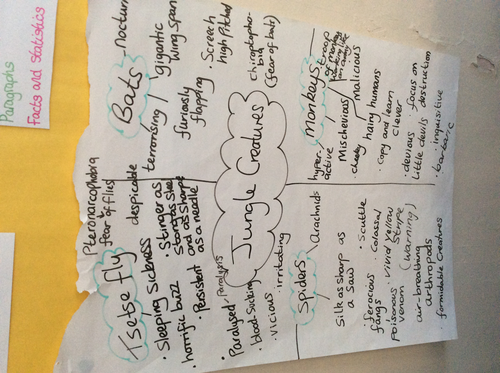 Paragraphs
Facts and Statistics
Jungle Creatures
Tsetse fly
Pteronarcophobia
fear of flies
despicable
• Sleeping Sickness
horrific buzz
• Stinger as
and as sharp
as a needle
• Persistent
• Paralysed - Paralysis
• bloodsucking
• vicious
• irritating
Bats
• nocturn
gigantic
wing span
terrorising
furiously
flapping
• Screech
high pitched
chiroptopho-
bia
(fear of bats)
Monkeys
troop
hyper-
active
Mischevious
• cheeky
malicious
hairy humans
• copy and learn
clever
• devious
little devils
• focus on
destruction
• inquisitive
• barbaric
Spiders
Arachnids
silk as sharp as
a saw
• scuttle
colossal
• ferocious
fangs
• vivid yellow
stripe
(warning)
poisonous
venom
air-breathing
arthropods
formidable creatures